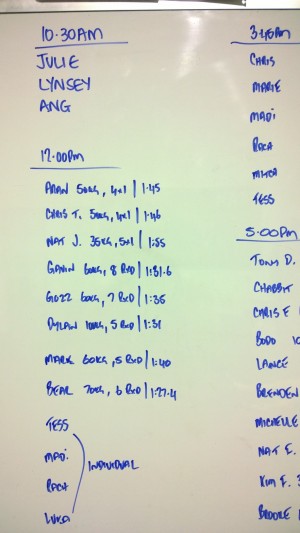 10.30AM
JULIE
LYNSEY
ANG
12.00PM
50KG, 4x1 | 1:45
CHRIS T. 50KG, 4x1 | 1:46
NAT J. 35KG, 5x1 | 1:55
60KG, 8 RxD | 1:31.6
GOZZ 60KG, 7 RxD | 1:36
DYLAN 100KG, 5 RxD | 1:31
MARK 60KG, 5 RxD | 1:40
BEAR 70KG, 6 RxD | 1:27.4
TESS
MADI
RACH
LUKA
INDIVIDUAL
3:45PM
CHRIS
MARIE
MADI
MITCH
TESS
5:00PM
TONY D.
CHABBIT
CHRIS E
BODD 10
LANCE
BRENDEN
MICHELLE
NAT E.
KIM F. 3
BROOKE